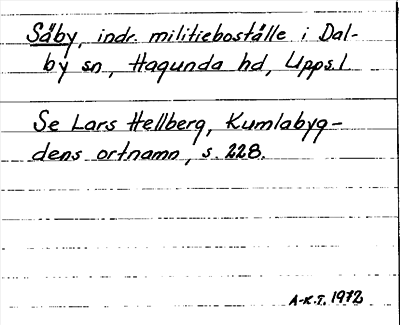 Säby, indr. militieboställe i Dal-
by sn, Hagunda hd, Upps.l.
Se Lars Hellberg, Kumlabyg-
dens ortnamn, s. 228.
A-K.T. 1972